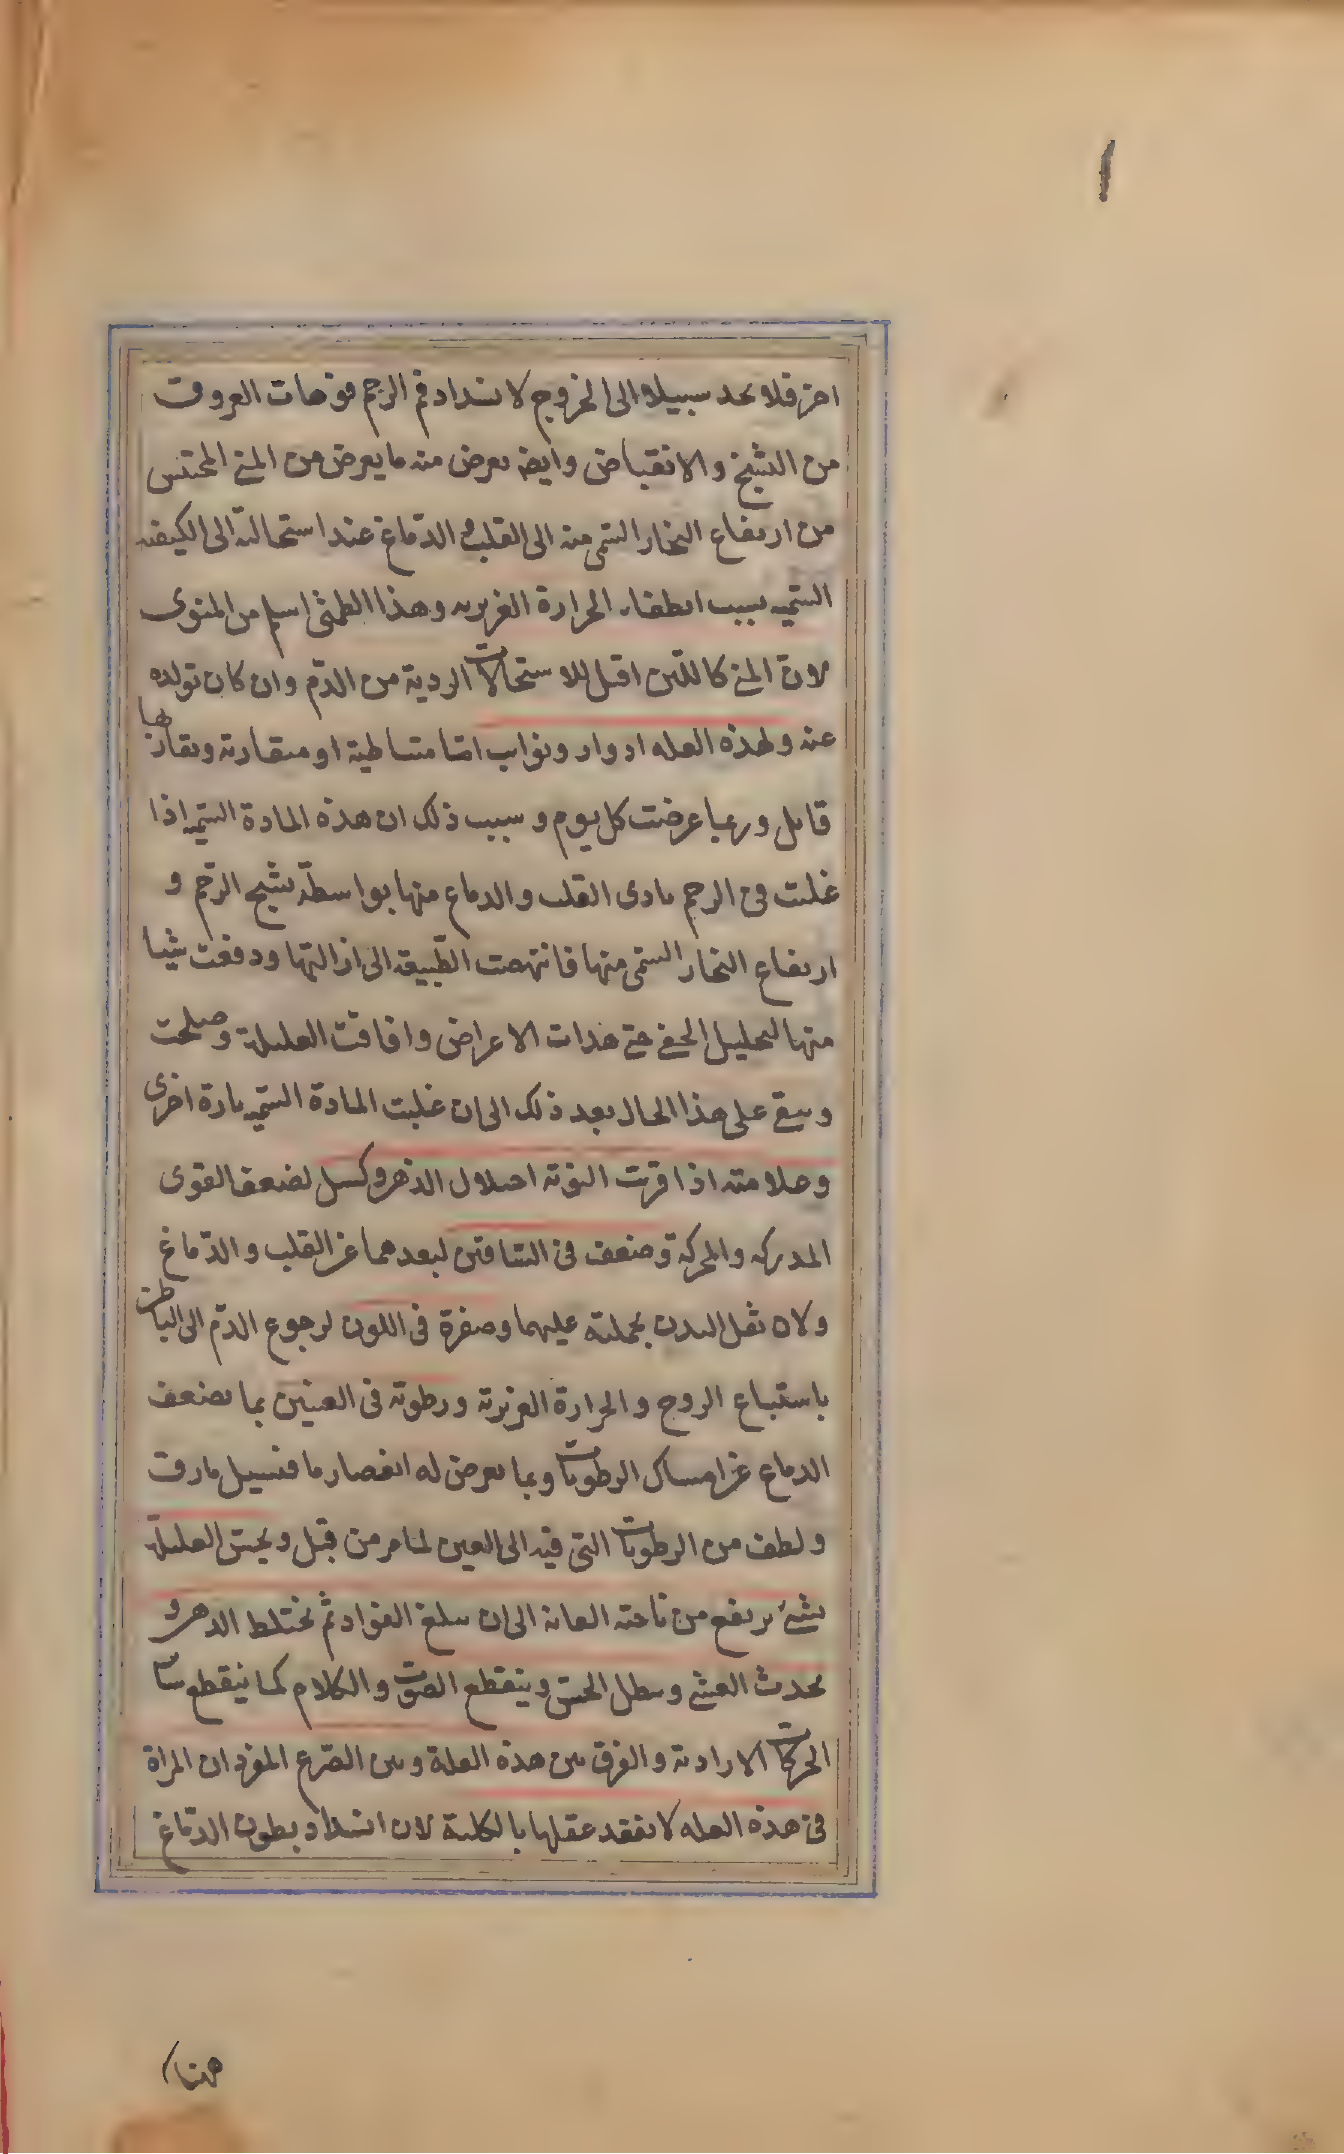 ا
اخر فلا يجد سبيلا الى الخروج لانسداد فم الرحم فوهات العروق
من التشنج والانقباض وايضا يعرض منه ما يعرض من المنى المحتبس
من ارتفاع البخار السمى منه الى القلب و الدماغ عند استحالته الى الكيفية
السمية بسبب انطفاء الحرارة الغريزية وهذا الطمثى اسلم من المنوى
لان المنى كاللبن اقبل للاستحالات الردية من الدم وان كان تولده
عنه ولهذه العله ادوار ونوايب اما متباطية او متقاربة وتقاربها
قاتل وربما عرضت كل يوم و سبب ذلك ان هذه المادة السمية اذا
غلبت فى الرحم تادى القلب والدماغ منها بواسطة تشنج الرحم و
ارتفاع البخار السمى منها فانتهضت الطبيعة الى ازالتها ودفعت شيا
منها لتحليل الخفى حتى هدات الاعراض وافاقت العليلة وصلحت
وتبقى على هذا الحال بعد ذلك الى ان غلبت المادة السمية تارة اخرى
وعلامته اذا قربت النوبة اختلال الذهن وكسل لضعف القوى
المدركه والمحركة وضعف فى الساقين لبعدهما عن القلب والدماغ
ولان ثقل البدن بجملته عليهما وصفرة فى اللون لرجوع الدم الى الباطن
باستتباع الروح والحرارة الغريزية ورطوبة فى العينين بما يضعف
الدماغ عن امساك الرطوبات وبما يعرض له انعصار ما فيسيل مارق
ولطف من الرطوبات التى فيه الى العين لما مر من قبل ويحس العليلة
بشئ يرتفع من ناحية العانة الى ان يبلغ الفواد ثم يختلط الذهن و
يحدث الغشى ويبطل الحس وينقطع الصوت والكلام كما ينقطع سائر
الحركات الارادية والفرق بين هذه العلة وبين الصرع المفرد ان المراة
فى هذه العله لا تفقد عقلها بالكلية لان انسداد بطون الدماغ